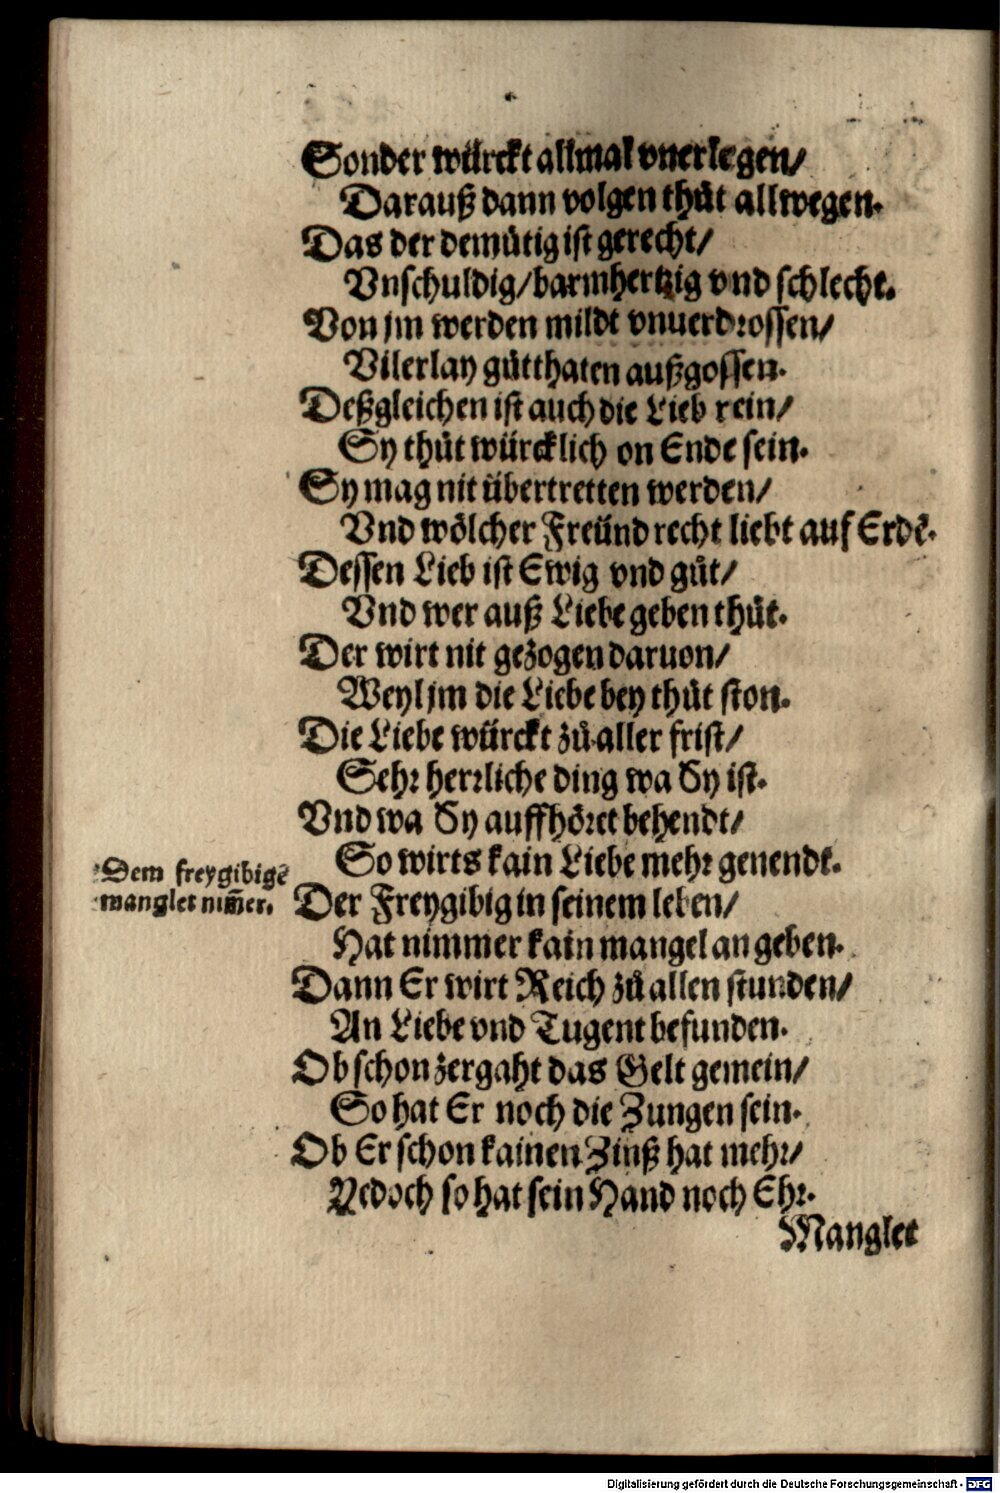 Sonder würckt allmal vnerlegen/
Darauß dann volgen thůt allwegen.
Das der demütig ist gerecht/
Vnschuldig/barmhertzig vnd schlecht.
Von jm werden mildt vnuerdrossen/
Vilerlay gůtthaten außgossen.
Deßgleichen ist auch die Lieb rein/
Sy thůt würcklich on Ende sein.
Sy mag nit übertretten werden/
Vnd wölcher Freünd recht liebt auf Erdẽ.
Dessen Lieb ist Ewig vnd gůt/
Vnd wer auß Liebe geben thůt.
Der wirt nit gezogen daruon/
Weyl jm die Liebe bey thůt ston.
Die Liebe würckt zů aller frist/
Sehr herrliche ding wa Sy ist.
Vnd wa Sy auffhöret behendt/
So wirts kain Liebe mehr genendt.
Dem freygibigẽ
manglet nim̃er.
Der Freygibig in seinem leben/
Hat nimmer kain mangel an geben.
Dann Er wirt Reich zů allen stunden/
An Liebe vnd Tugent befunden.
Ob schon zergaht das Gelt gemein/
So hat Er noch die Zungen sein.
Ob Er schon kainen Zinß hat mehr/
Yedoch so hat sein Hand noch Ehr.
Manglet
Digitalisierung gefördert durch die Deutsche Forschungsgemeinschaft - DFG